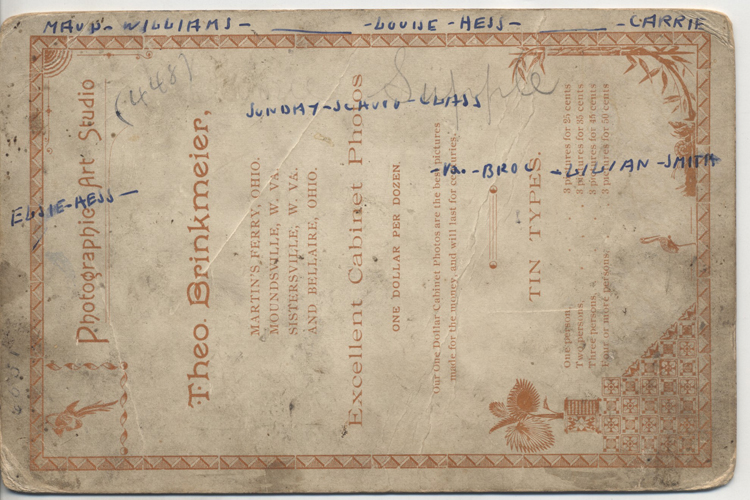 MAUD-WILLIAMS- -LOUISE-HESS- -CARRIE
(448)
SUNDAY- -CLASS
-LILLIAN-SMITH
ELSIE-HESS-
Photographic Art Studio
Theo. Brinkmeier,
MARTIN'S FERRY, OHIO.
MOUNDSVILLE, W. VA.
SISTERSVILLE, W. VA.
AND BELLAIRE, OHIO.
Excellent Cabinet Photos
ONE DOLLAR PER DOZEN.
Our One Dollar Cabinet Photos are the best pictures
made for the money, and will last for centuries.
TIN TYPES.
One person, 3 pictures for 25 cents
Two persons, 3 pictures for 35 cents
Three persons, 3 pictures for 45 cents
Four or more persons, 3 pictures for 50 cents